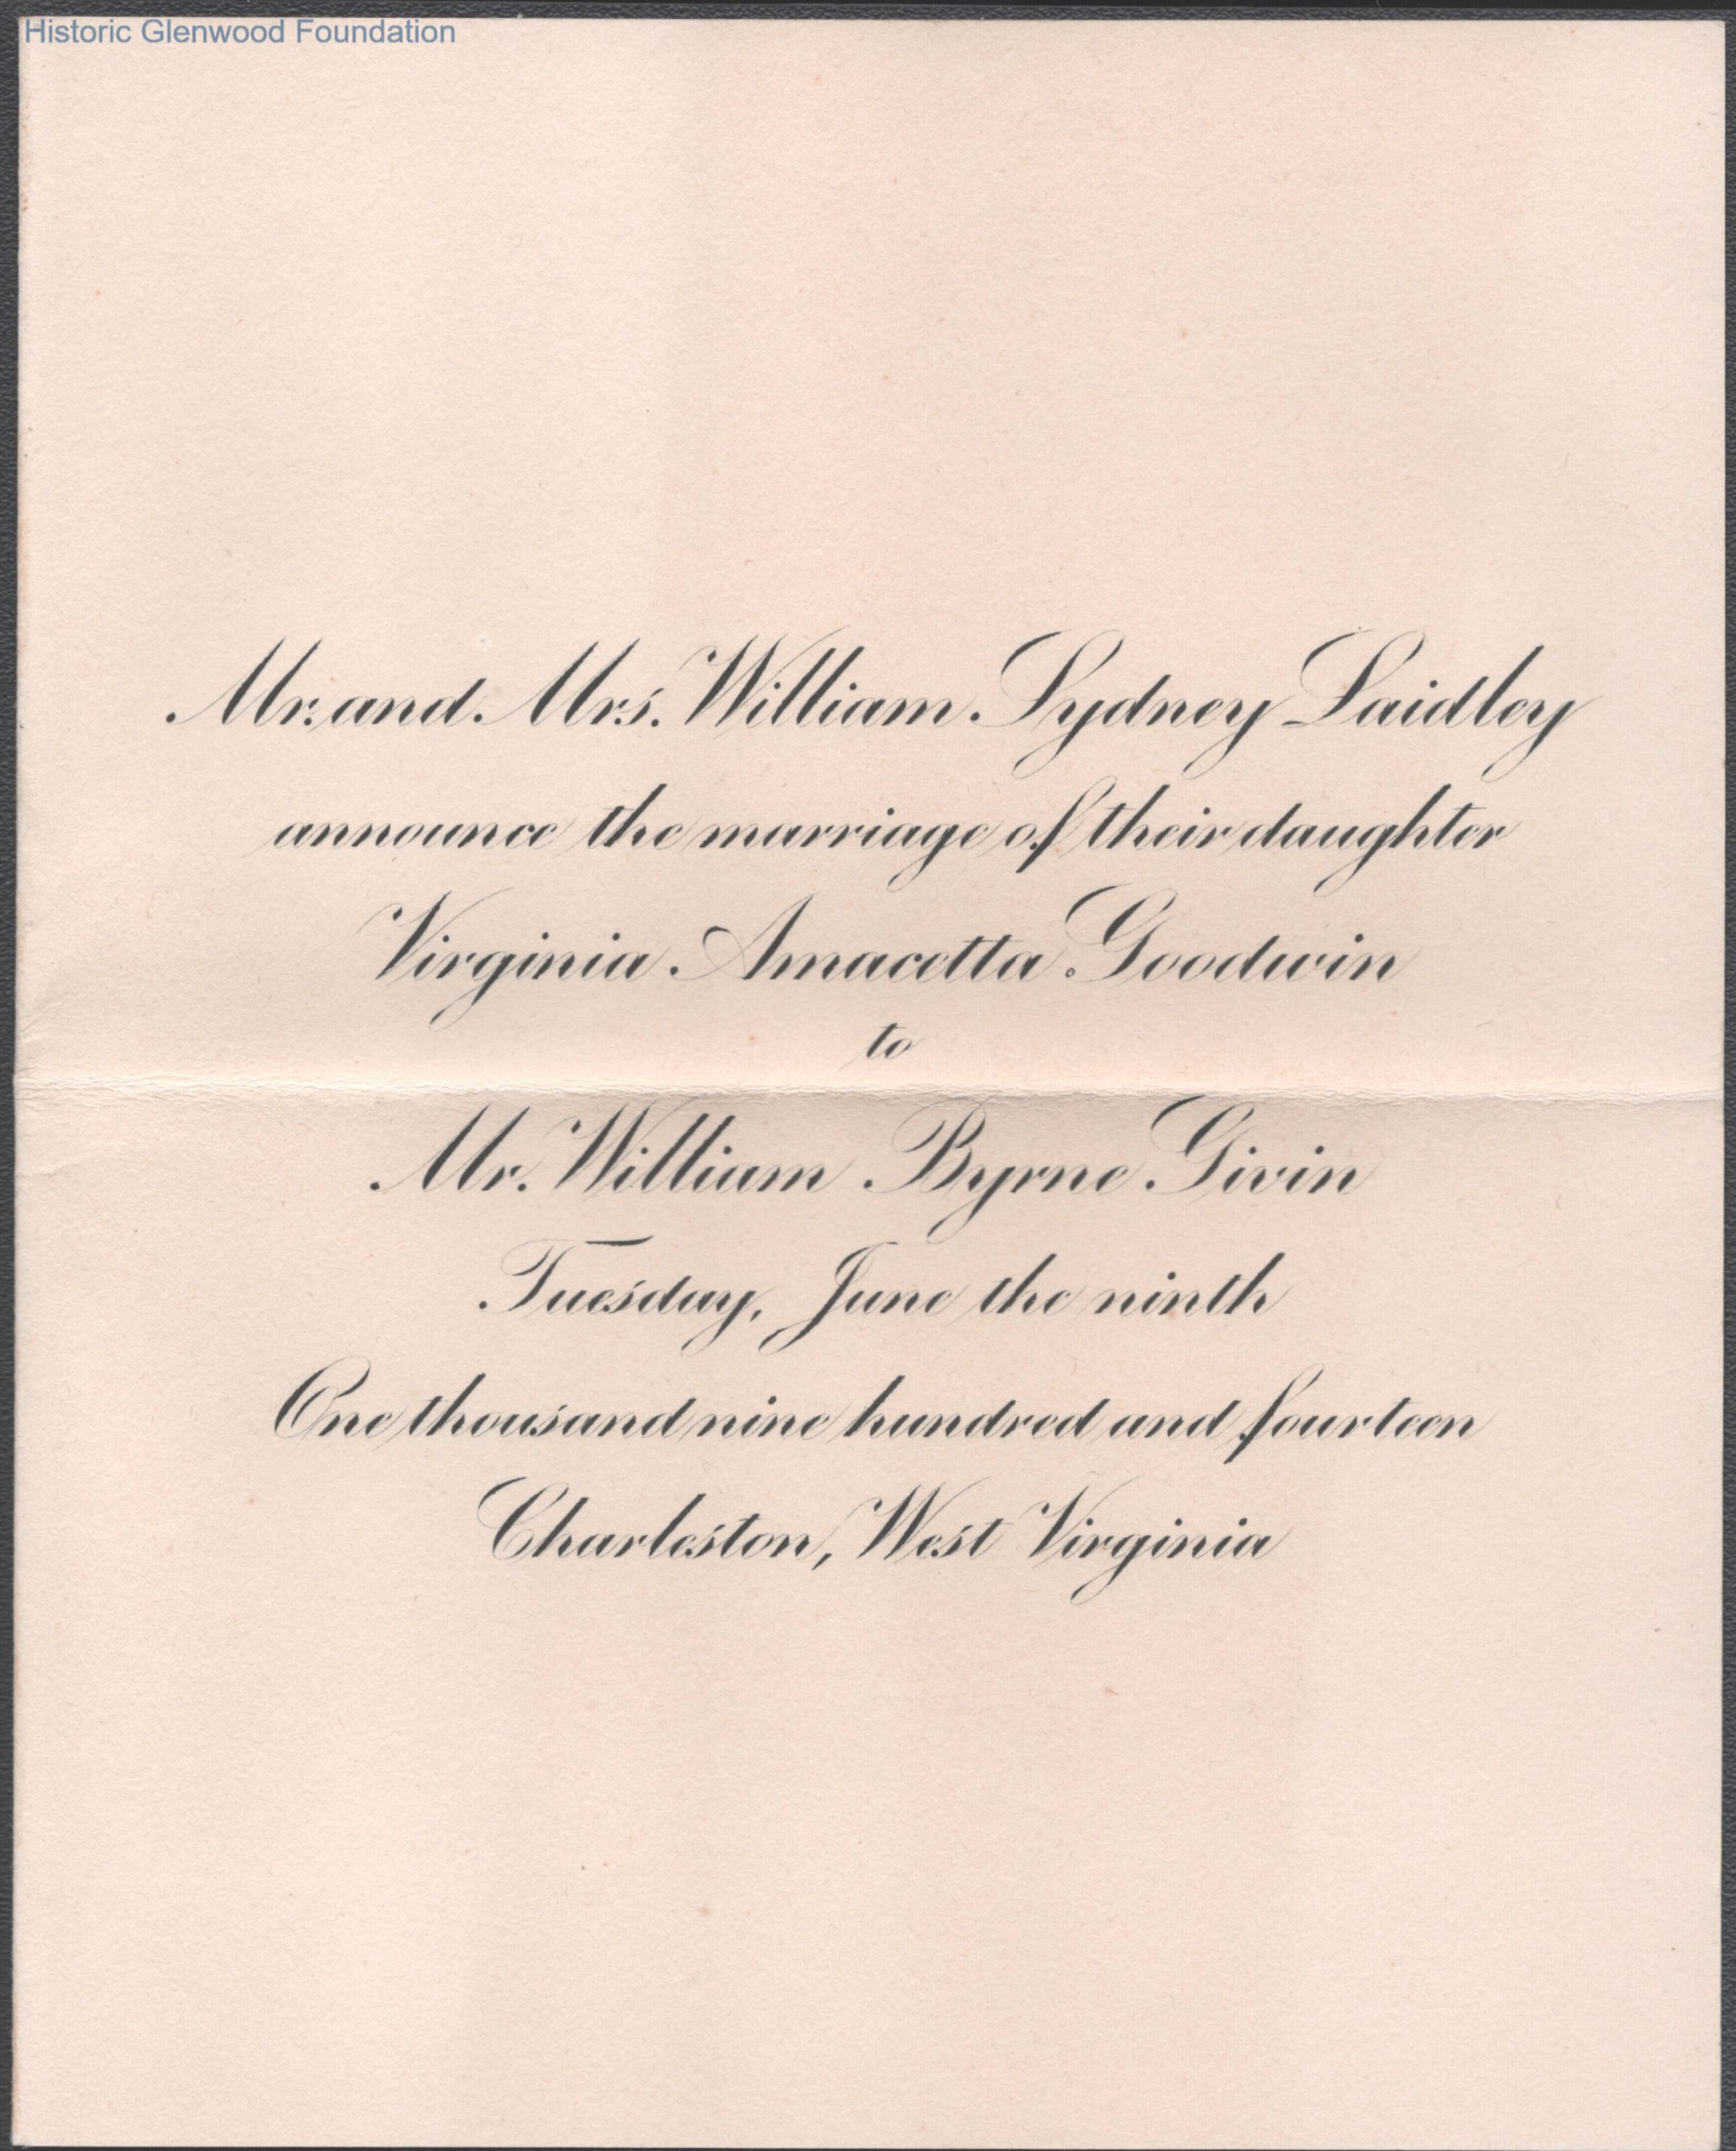 Historic Glenwood Foundation
Mr. and Mrs. William Sydney Laidley
announce the marriage of their daughter
Virginia Amacetta Goodwin
to
Mr. William Byrne Givin
Tuesday, June the ninth
One thousand nine hundred and fourteen
Charleston, West Virginia